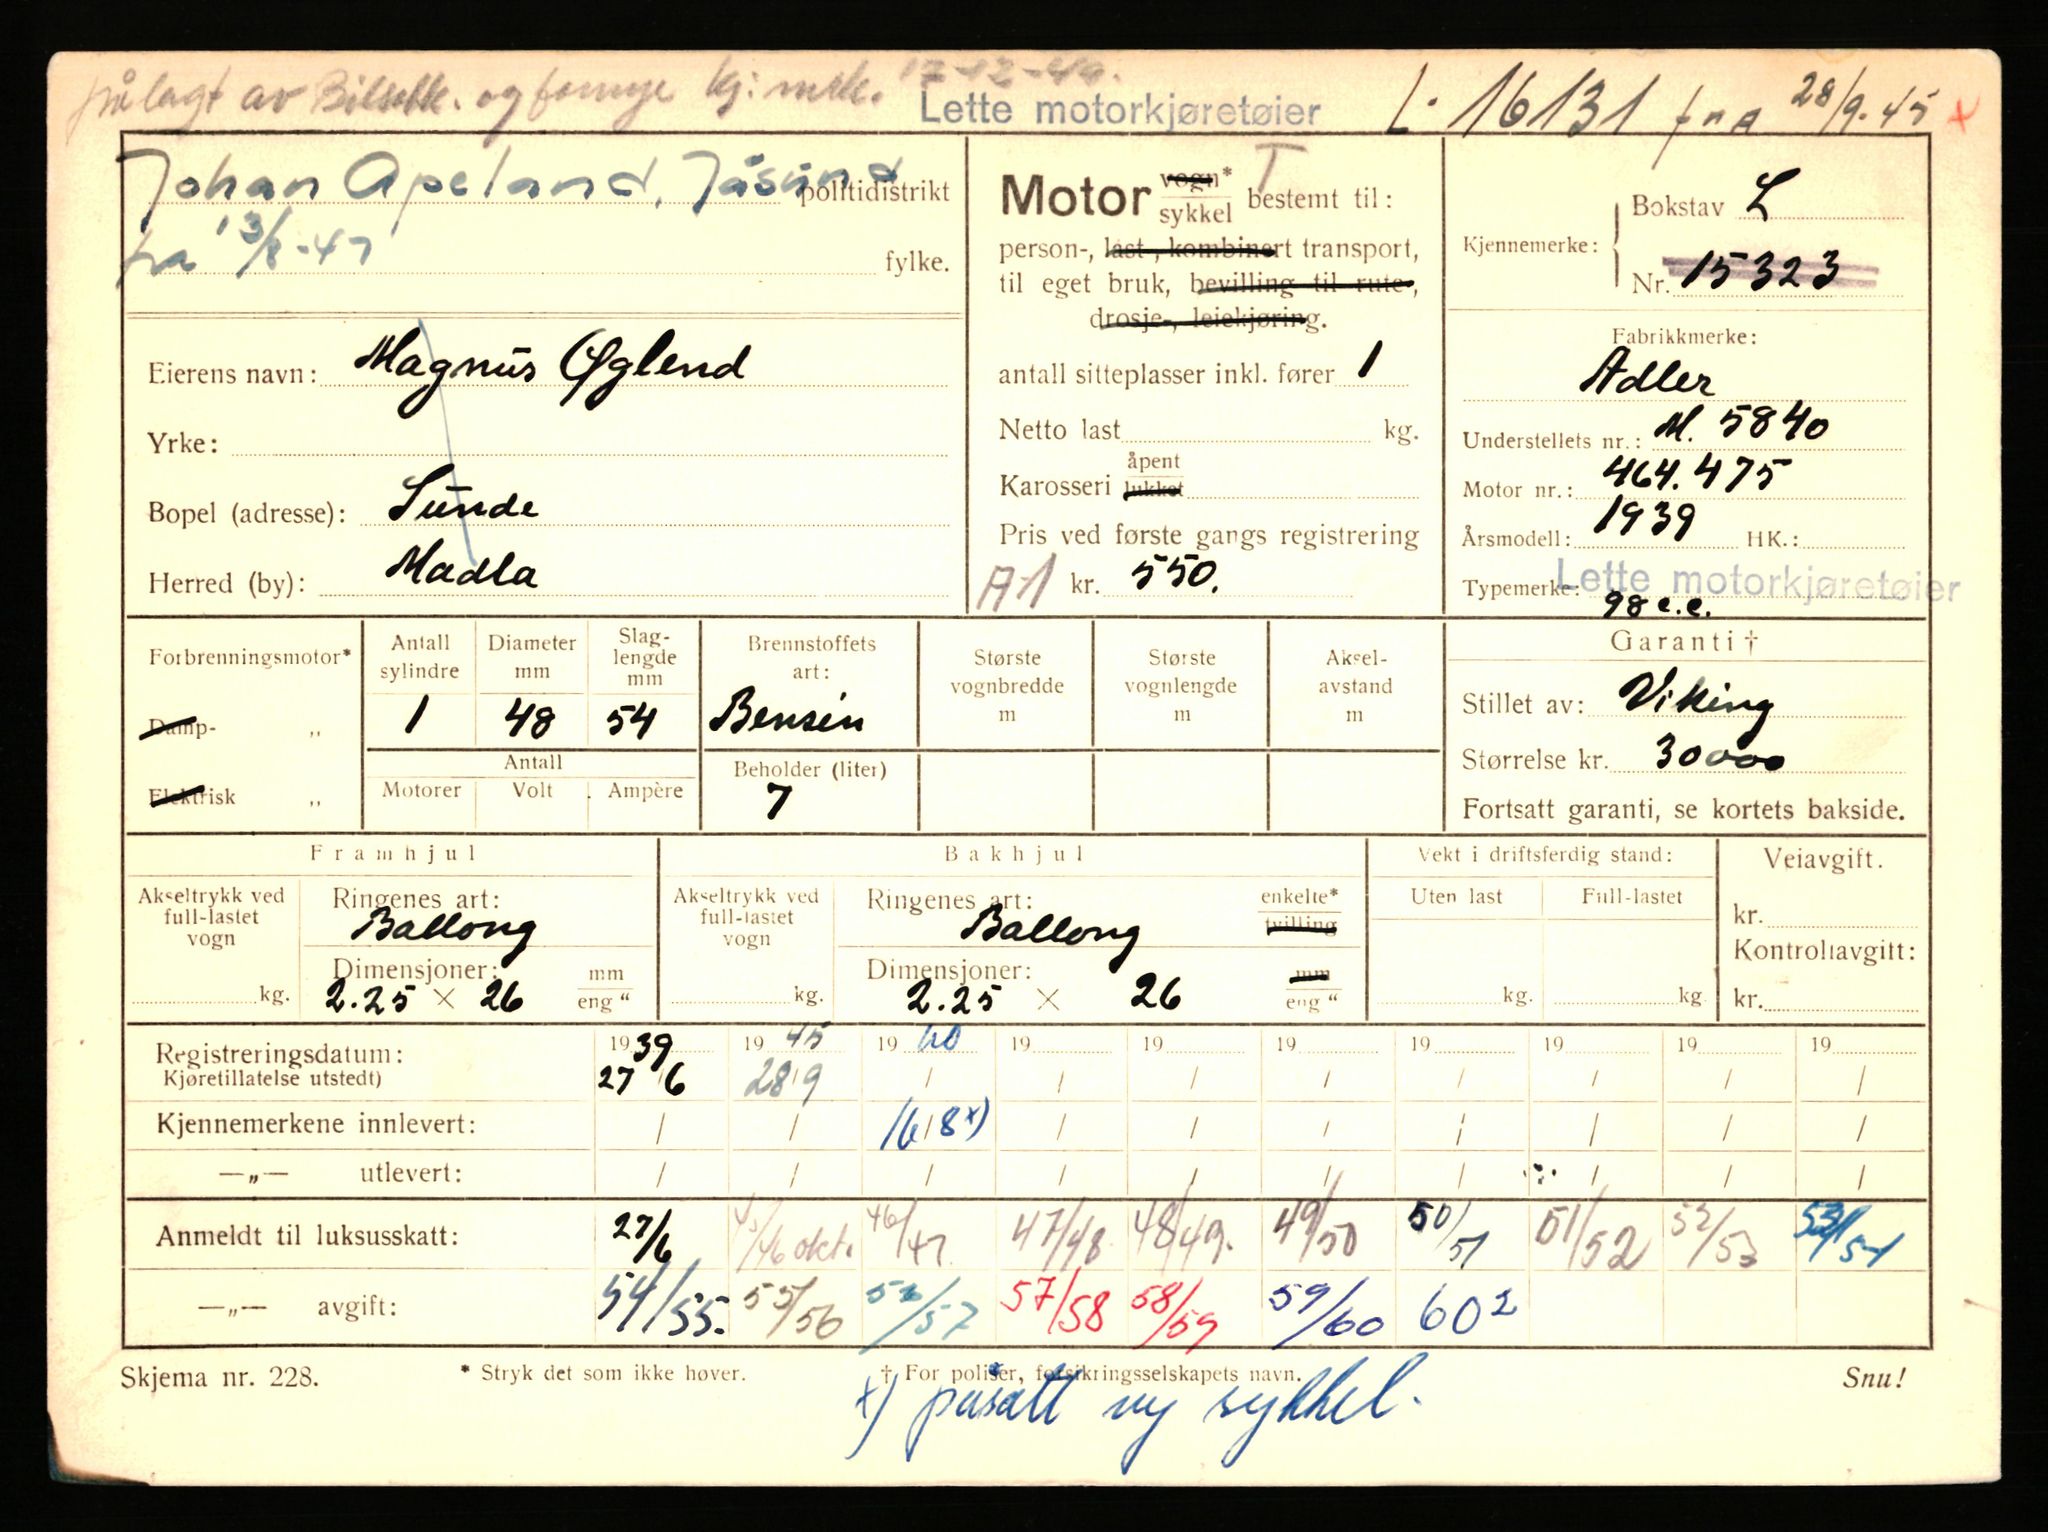 pålagt av Bilsakk. og fornye kj: mrk. 17-12-49.
Lette motorkjøretøier
L. 16131 fra 28/9.45 x
Johan Apeland, Jåsund politidistrikt
fra 13/8-47 fylke.
Eierens navn: Magnus Øglend
Yrke:
Bopel (adresse): Sunde
Herred (by): Madla
T
Motor vogn* sykkel bestemt til:
person-, last-, kombinert transport,
til eget bruk, bevilling til rute-,
drosje-, leiekjøring.
antall sitteplasser inkl. fører 1
Netto last kg.
Karosseri åpent lukket
Pris ved første gangs registrering
A-1 kr. 550.
Kjennemerke: Bokstav L
Nr. 15323
Fabrikkmerke:
Adler
Understellets nr.: M. 5840
Motor nr.: 464.475
Årsmodell: 1939 HK.:
Lette motorkjøretøier
Typemerke: 98 c.c.
Forbrenningsmotor*
Damp- „
Elektrisk „
Antall sylindre 1
Diameter mm 48
Slaglengde mm 54
Antall
Motorer Volt Ampère
Brennstoffets art:
Bensin
Beholder (liter)
7
Største vognbredde m
Største vognlengde m
Akselavstand m
Garanti †
Stillet av: Viking
Størrelse kr. 30000
Fortsatt garanti, se kortets bakside.
Framhjul
Akseltrykk ved full-lastet vogn
kg.
Ringenes art:
Ballong
Dimensjoner: mm
2.25 × 26 eng "
Bakhjul
Akseltrykk ved full-lastet vogn
kg.
Ringenes art: enkelte*
Ballong tvilling
Dimensjoner: mm
2.25 × 26 eng "
Vekt i driftsferdig stand:
Uten last Full-lastet
kg. kg.
Veiavgift.
kr.
Kontrollavgift:
kr.
Registreringsdatum: 1939 1945 1960 19 19 19 19 19 19 19
Kjøretillatelse utstedt) 27/6 28/9 / / / / / / / /
Kjennemerkene innlevert: / / 16/8 x) / / / / / / /
—„— utlevert: / / / / / / / / / /
Anmeldt til luksusskatt: 27/6 45/46 okt. 46/47. 47/48 48/49. 49/50 50/51 51/52 52/53 53/54
—„— avgift: 54/55. 55/56 56/57 57/58 58/59 59/60 60 2
Skjema nr. 228.
* Stryk det som ikke høver.
† For poliser, forsikringsselskapets navn.
Snu!
x) påsatt ny sykkel.